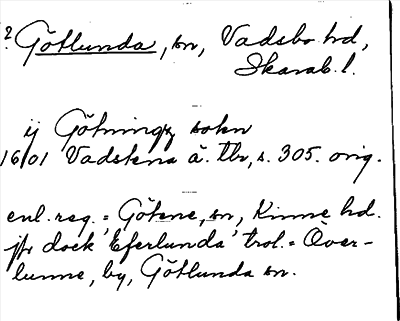 ? Götlunda, sn, Vadsbo hd,
Skarab. l.
ij Götninge sokn
1601 Vadstena ä. tb, s. 305. orig.
enl. reg. = Götene, sn, Kinne hd.
jfr dock 'Eferlunda' trol. = Över-
lunne, by, Götlunda sn.